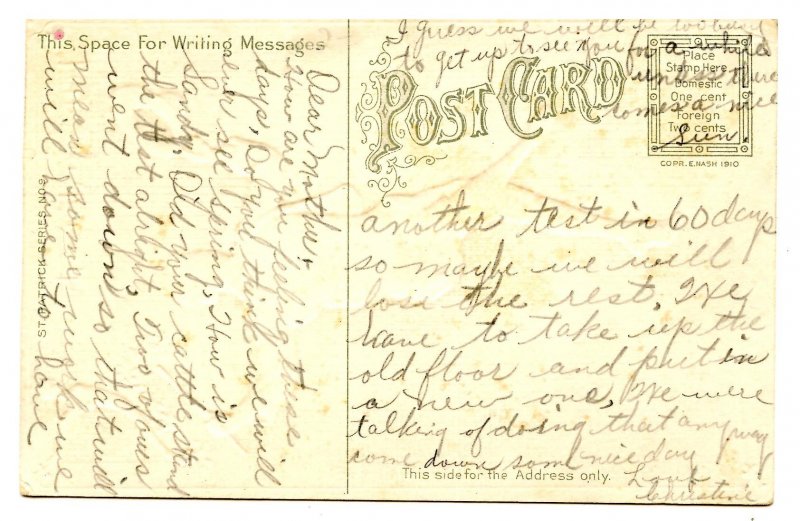 This Space For Writing Messages
ST. PATRICK SERIES. NO. 9
Dear Mother,
How are you feeling these
days, Do you think we will
ever see spring, How is
Sandy, Did your cattle stand
the test alright, Two of ours
went down so that will
mean some work we
will have to have
another test in 60 days
so maybe we will
lose the rest, We
have to take up the
old floor and put in
a new one, We were
talking of doing that anyway
come down some nice day
Love
Christine
I guess we will be too busy
to get up to see you for a while
unless there
comes a nice
Sun.
POST CARD
Place
Stamp Here
Domestic
One cent
Foreign
Two cents
COPR. E. NASH 1910
This side for the Address only.